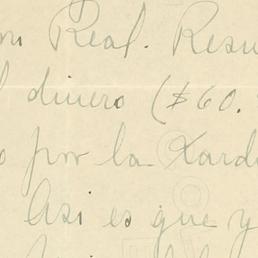 Real. Resu
dinero ($60.
por la Tard
Asi es que y